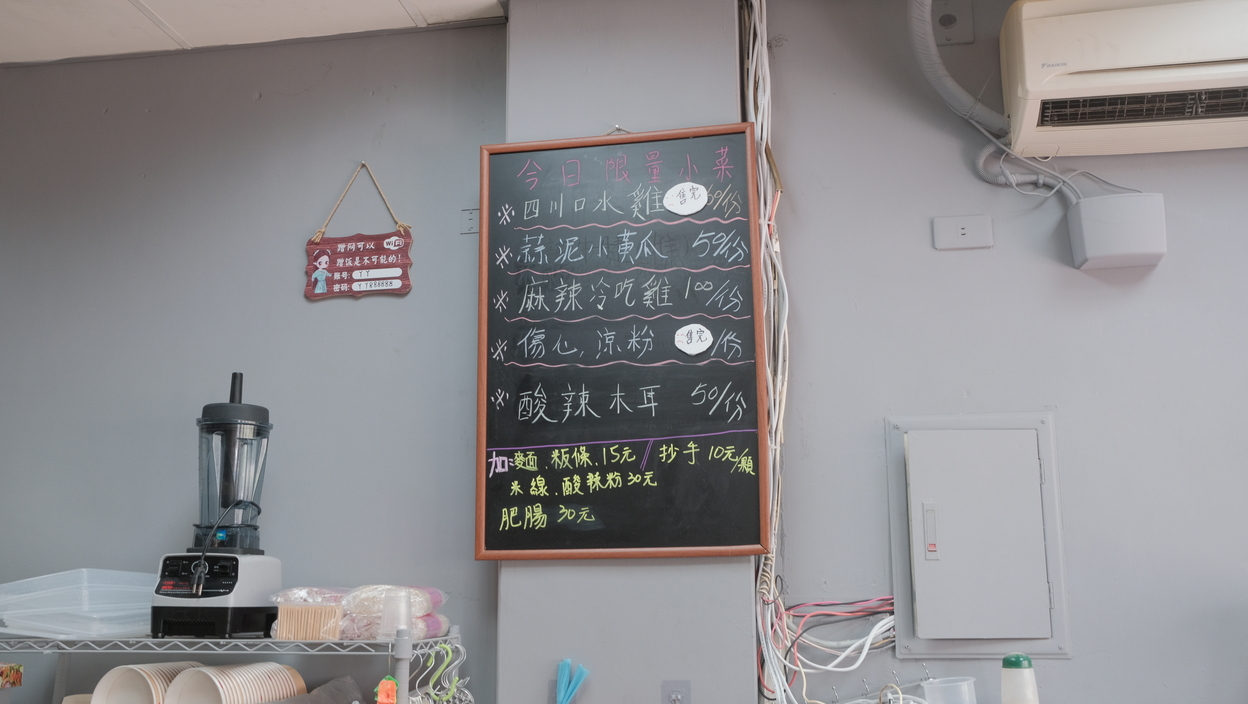 今日限量小菜
※四川口水雞 售完 /份
※蒜泥小黃瓜 50/份
※麻辣冷吃雞 100/份
※傷心涼粉 售完 /份
※酸辣木耳 50/份
加:麵.粄條.15元//抄手10元/顆
米線.酸辣粉30元
肥腸 30元
蹭网可以 WiFi
蹭饭是不可能的!
账号: YY
密码: